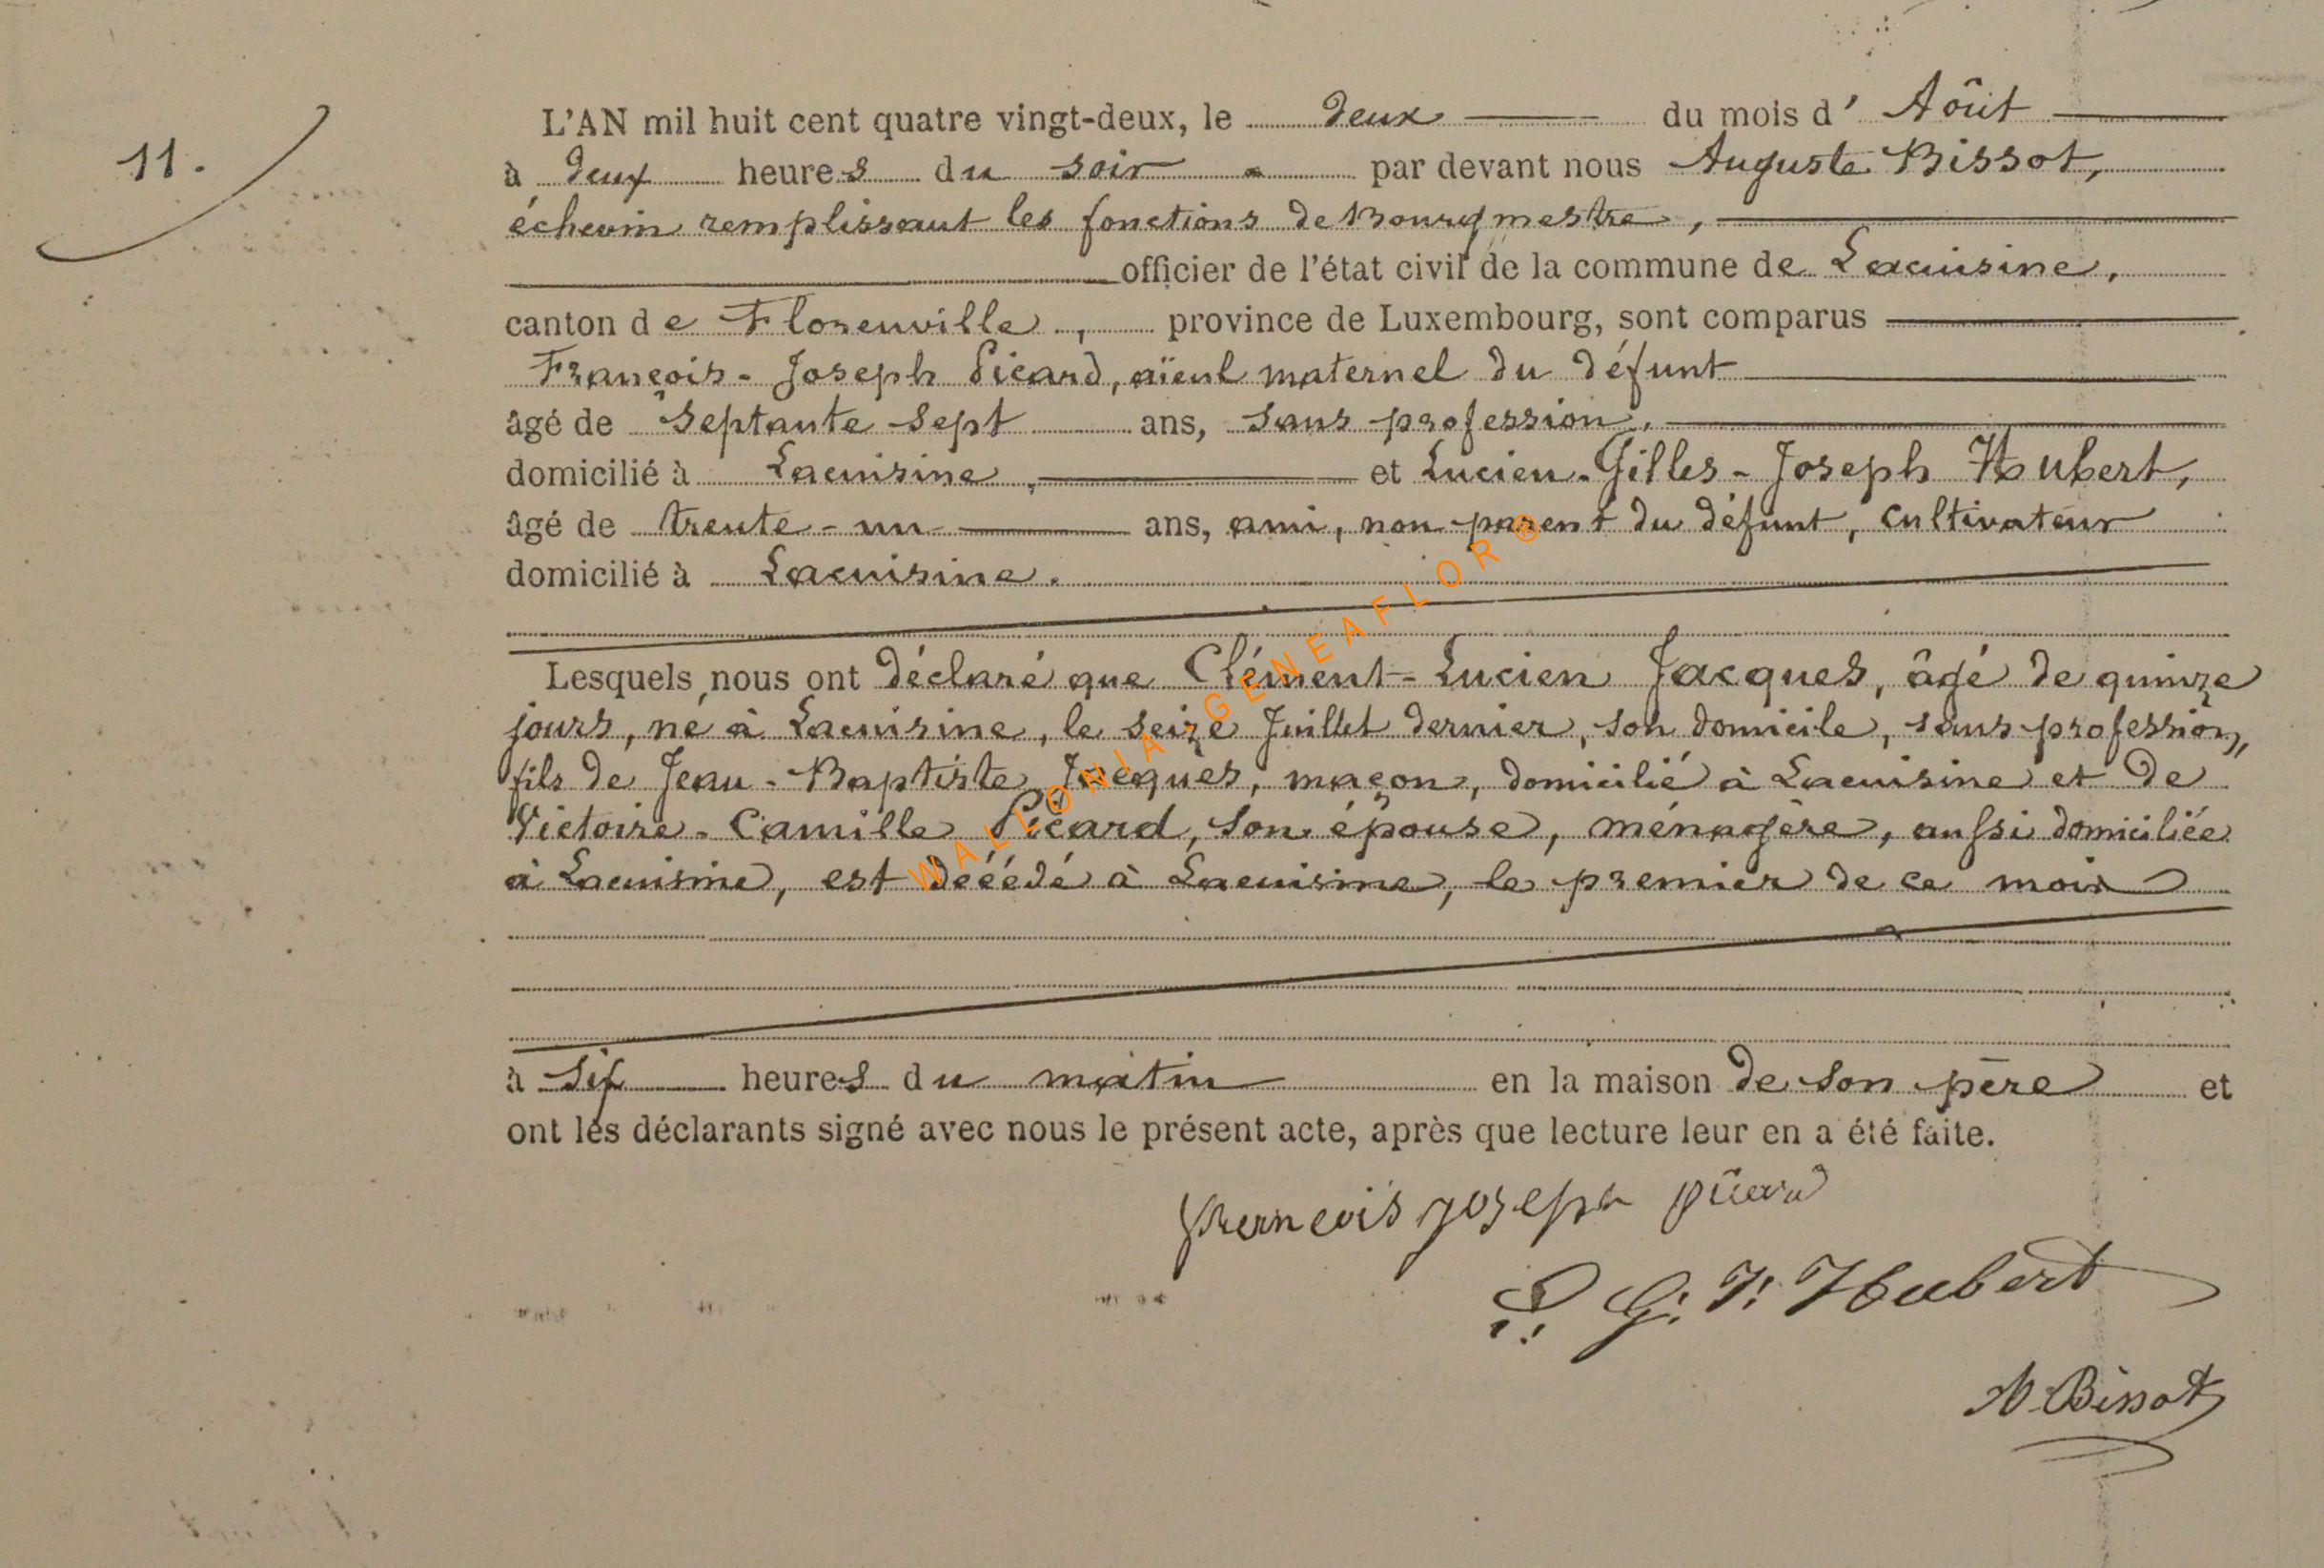 11.
L'AN mil huit cent quatre vingt-deux, le deux du mois d' Aôut
à deux heures du soir par devant nous Auguste Bissot,
échevin remplissant les fonctions de Bourgmestre,
officier de l'état civil de la commune de Lacuisine,
canton de Florenville, province de Luxembourg, sont comparus
François-Joseph Picard, aïeul maternel du défunt
âgé de septante sept ans, sans profession,
domicilié à Lacuisine, et Lucien-Gilles-Joseph Hubert,
âgé de trente-un ans, ami, non parent du défunt, cultivateur
domicilié à Lacuisine.
Lesquels nous ont déclaré que Clément-Lucien Jacques, âgé de quinze
jours, né à Lacuisine, le seize Juillet dernier, son domicile, sans profession,
fils de Jean-Baptiste Jacques, maçon, domicilié à Lacuisine et de
Victoire-Camille Picard, son épouse, ménagère, aussi domiciliée
à Lacuisine, est décédé à Lacuisine, le premier de ce mois
à six heures du matin en la maison de son père et
ont les déclarants signé avec nous le présent acte, après que lecture leur en a été faite.
francois joseph picard
L. G. J. Hubert
A Bissot
WALLONIA GENEAFLOR ®